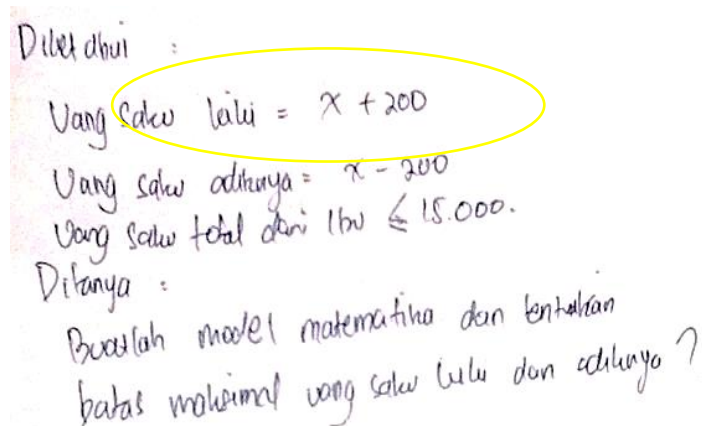 Diketahui :
Uang saku lulu = x + 200
Uang saku adiknya = x - 200
Uang saku total dari Ibu ≤ 15.000.
Ditanya :
Buatlah model matematika dan tentukan
batas maksimal uang saku lulu dan adiknya ?